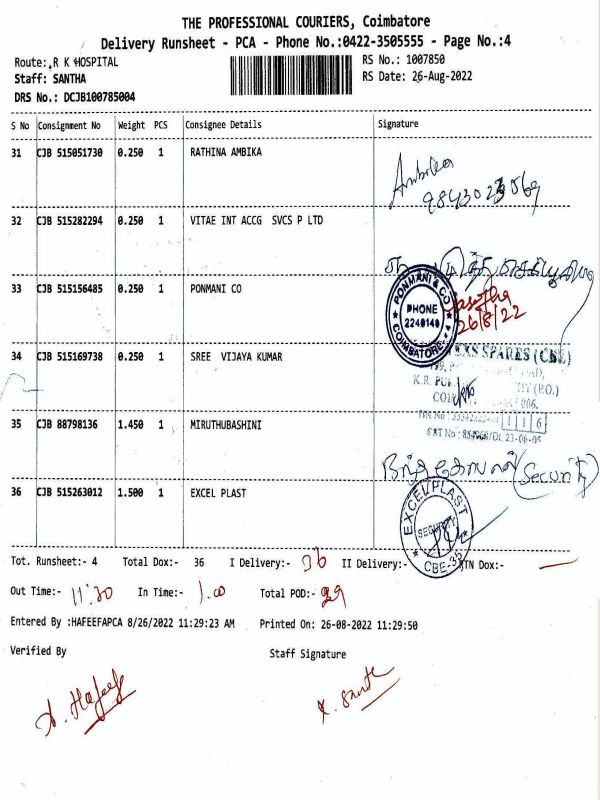 THE PROFESSIONAL COURIERS, Coimbatore
Delivery Runsheet - PCA - Phone No.:0422-3505555 - Page No.:4
Route: R K HOSPITAL
RS No.: 1007850
Staff: SANTHA
RS Date: 26-Aug-2022
DRS No.: DCJB100785004
S No Consignment No Weight PCS Consignee Details Signature
31 CJB 515051730 0.250 1 RATHINA AMBIKA
Ambika
32 CJB 515282294 0.250 1 VITAE INT ACCG SVCS P LTD
33 CJB 515156485 0.250 1 PONMANI CO
PONMANI & CO
PHONE
2240140
COIMBATORE
26/8/22
34 CJB 515169738 0.250 1 SREE VIJAYA KUMAR
SPARES (CBE)
K.R.
(P.O.)
35 CJB 88798136 1.450 1 MIRUTHUBASHINI
116
23-06-05
(Security)
36 CJB 515263012 1.500 1 EXCEL PLAST
EXCEL PLAST
SECURITY
CBE-35
Tot. Runsheet:- 4 Total Dox:- 36 I Delivery:- 36 II Delivery:- RTN Dox:-
Out Time:- 11:30 In Time:- 1.00 Total POD:- 29
Entered By :HAFEEFAPCA 8/26/2022 11:29:23 AM Printed On: 26-08-2022 11:29:50
Verified By Staff Signature